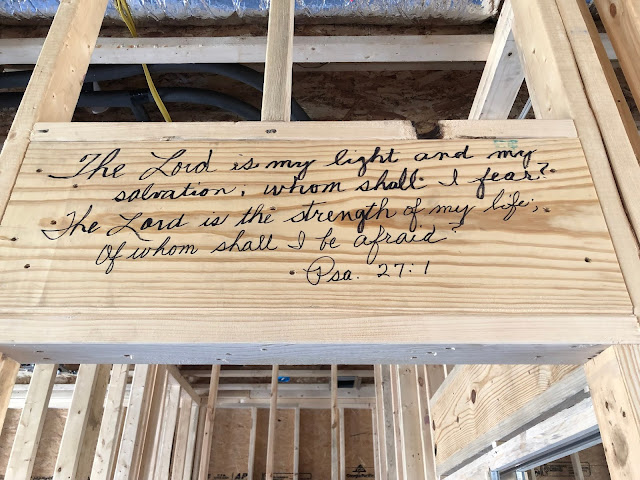 The Lord is my light and my
salvation; whom shall I fear?
The Lord is the strength of my life;
Of whom shall I be afraid?
Psa. 27:1